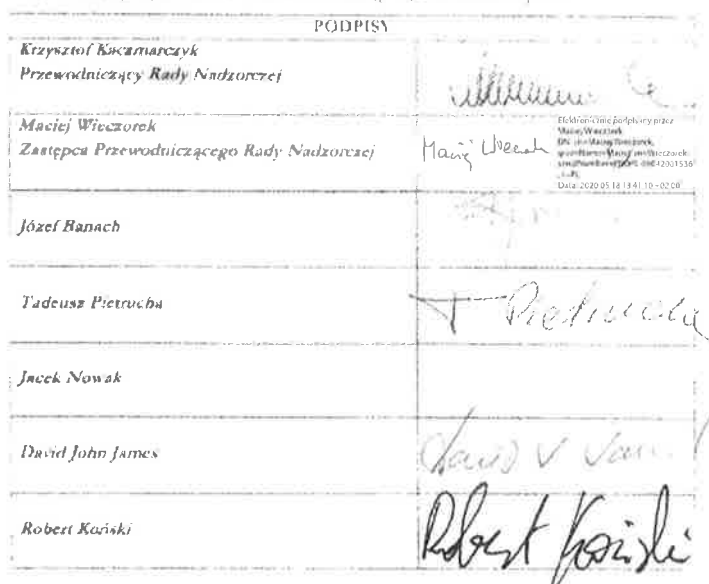 PODPISY
Krzysztof Kaczmarczyk
Przewodniczący Rady Nadzorczej
Maciej Wieczorek
Zastępca Przewodniczącego Rady Nadzorczej
Maciej Wieczorek
Elektronicznie podpisany przez
Maciej Wieczorek
Data: 2020.05.18 13:41:10 +02'00'
Józef Banach
Tadeusz Pietrucha
T Pietrucha
Jacek Nowak
David John James
Robert Koński
Robert Koński